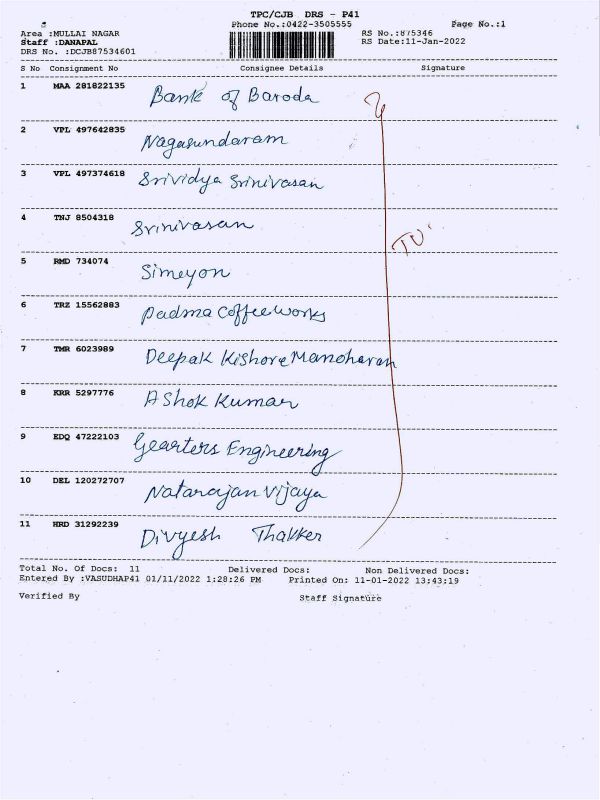 TPC/CJB DRS - P41
Phone No.:0422-3505555 Page No.:1
Area :MULLAI NAGAR RS No.:875346
Staff :DANAPAL RS Date:11-Jan-2022
DRS No. :DCJB87534601
S No Consignment No Consignee Details Signature
1 MAA 281822135 Bank of Baroda
2 VPL 497642835 Nagasundaram
3 VPL 497374618 Srividya Srinivasan
4 TNJ 8504318 Srinivasan
5 RMD 734074 Simeyon
6 TRZ 15562883 Padma Coffee works
7 TMR 6023989 Deepak Kishore Manoharan
8 KRR 5297776 Ashok Kumar
9 EDQ 47222103 Gearters Engineering
10 DEL 120272707 Natarajan Vijaya
11 HRD 31292239 Divyesh Thakker
Total No. Of Docs: 11 Delivered Docs: Non Delivered Docs:
Entered By :VASUDHAP41 01/11/2022 1:28:26 PM Printed On: 11-01-2022 13:43:19
Verified By Staff Signature